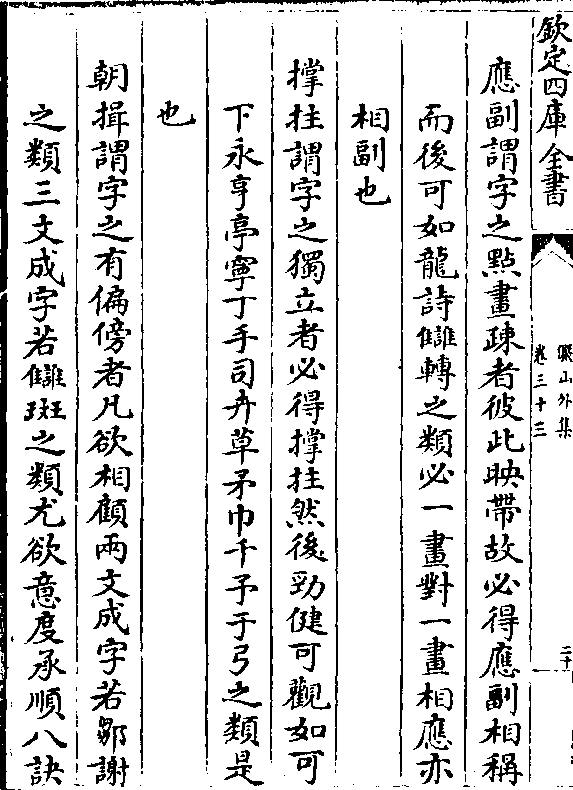 欽定四庫全書
儼山外集
卷三十三
二十
應副謂字之點畫疎者彼此映帶故必得應副相稱
而後可如龍詩讎轉之類必一畫對一畫相應亦
相副也
撑拄謂字之獨立者必得撑拄然後勁健可觀如可
下永亨亭寧丁手司卉草矛巾千予于弓之類是
也
朝揖謂字之有偏傍者凡欲相顧兩文成字若鄒謝
之類三文成字若讎斑之類尤欲意度承順八訣